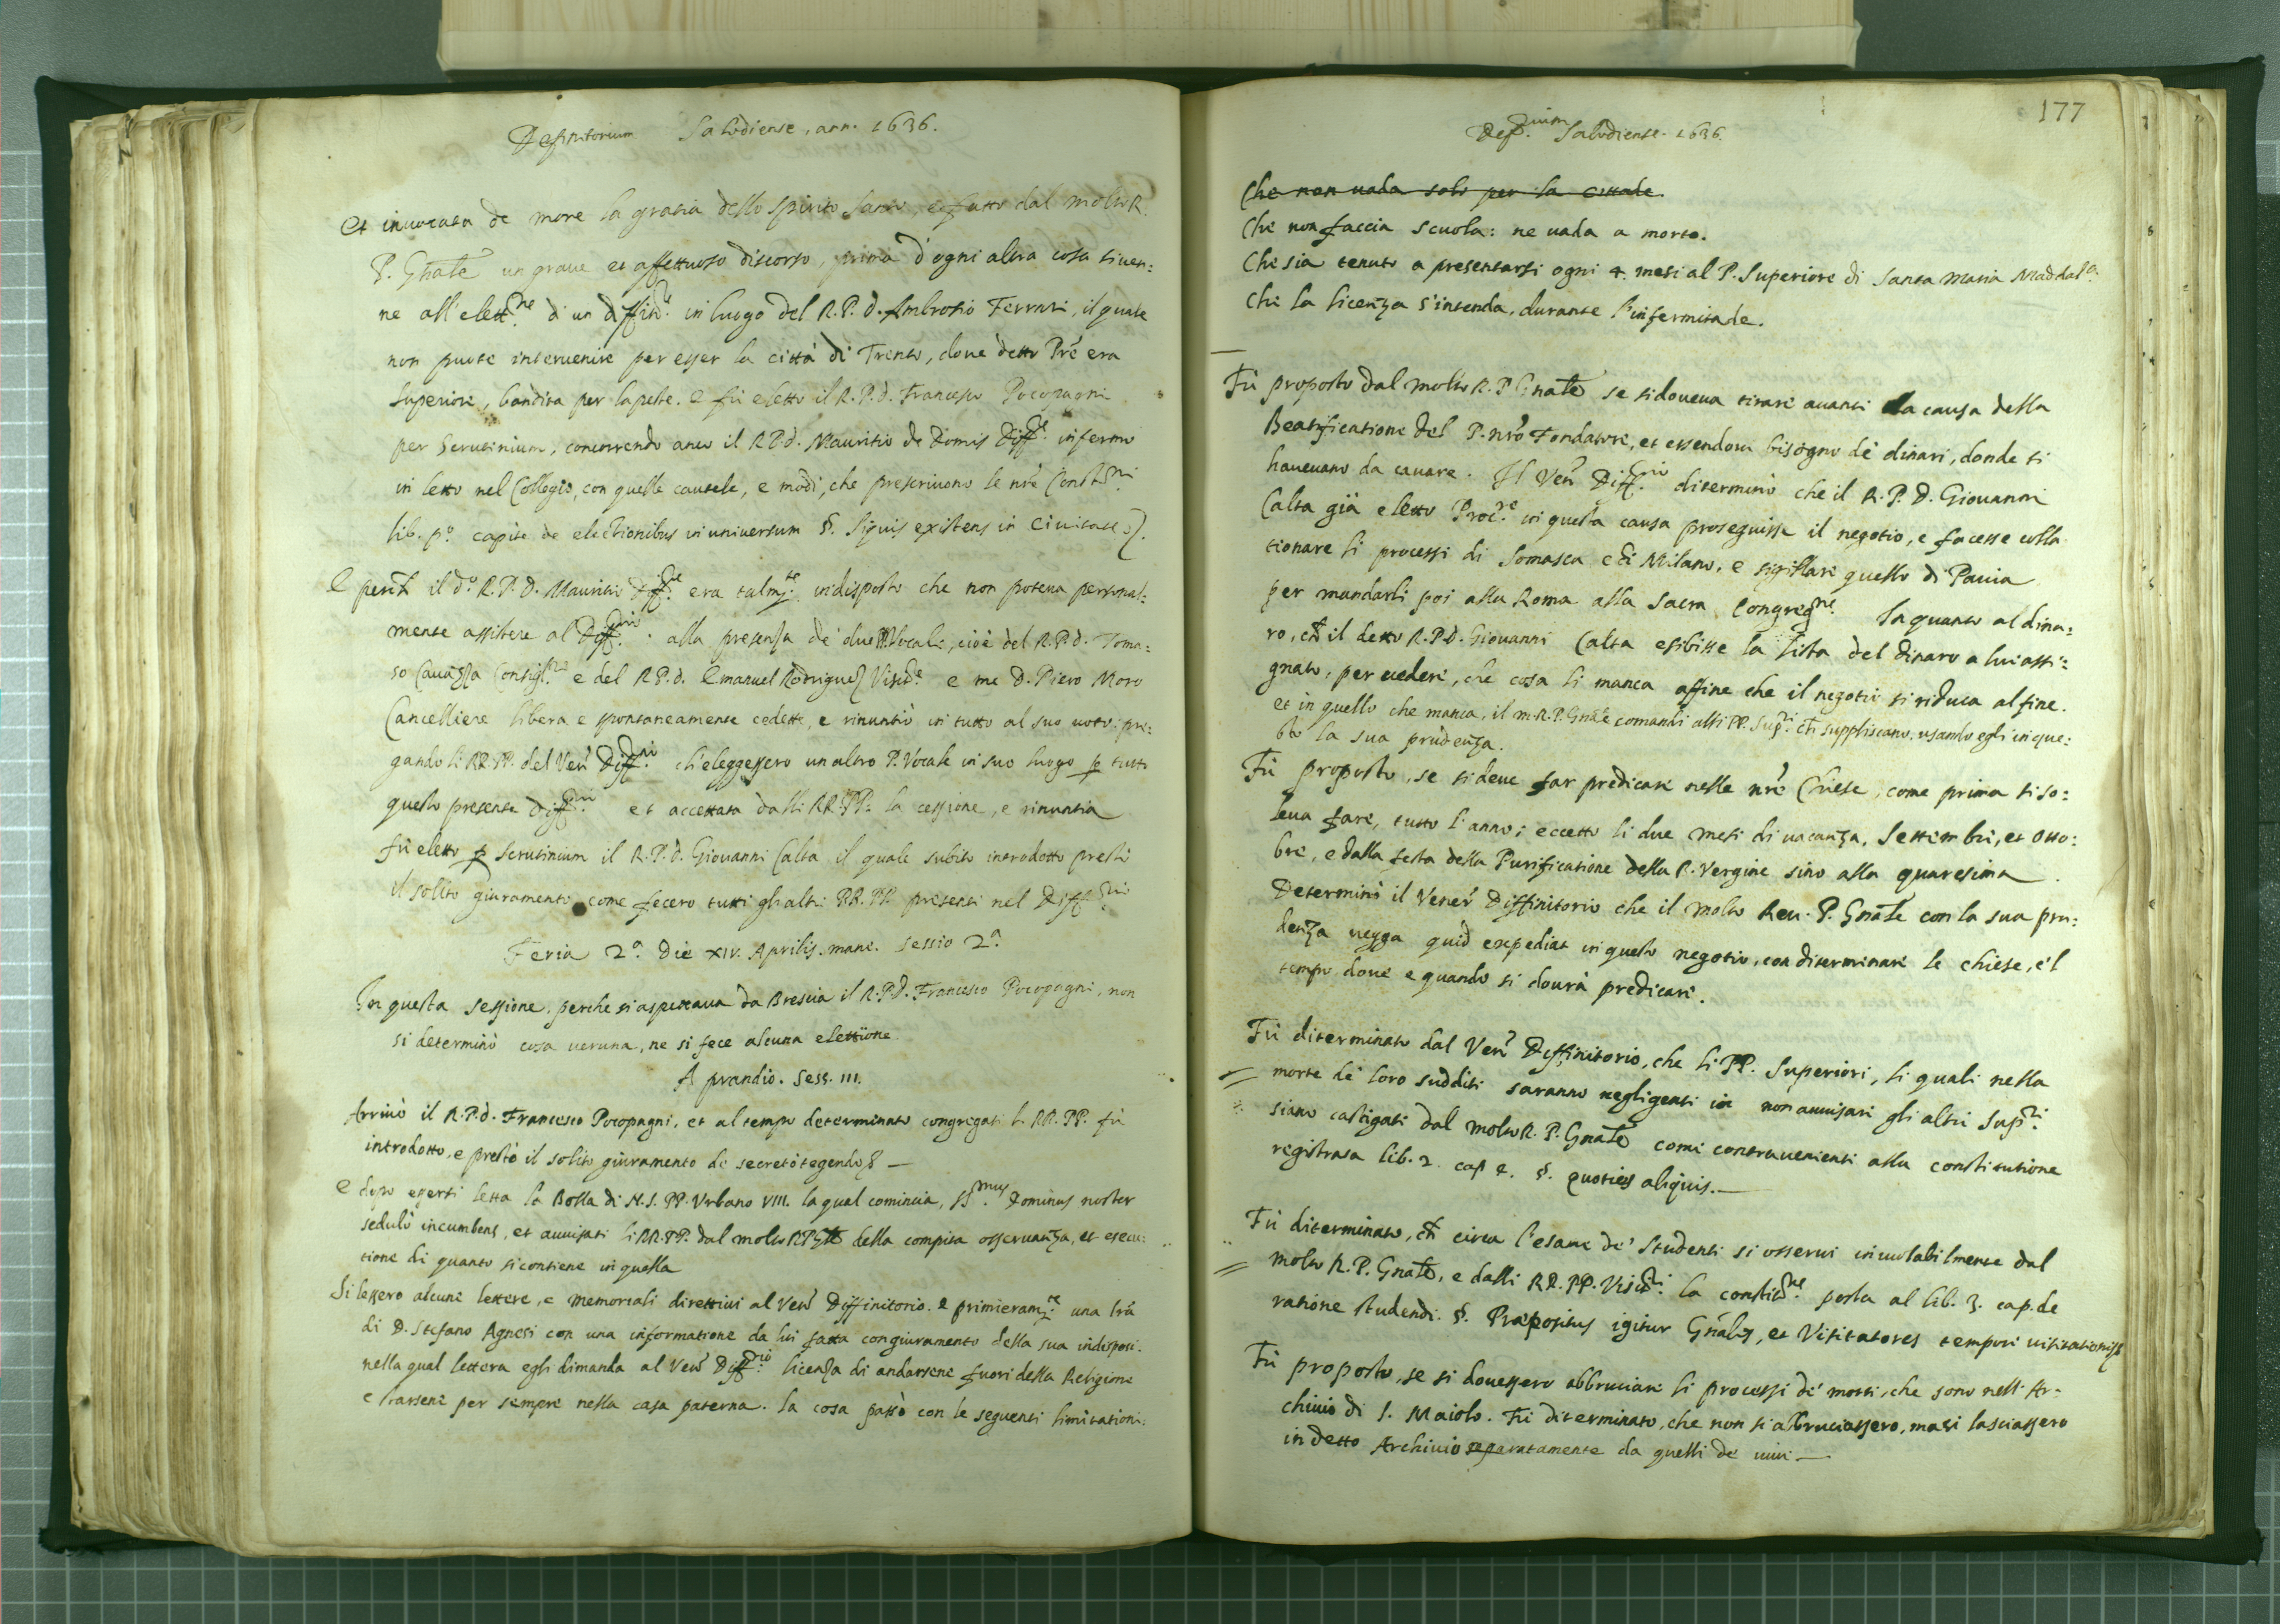 Definitorium Salodiense, ann. 1636.
Et inuocata de more la gratia dello Spirito Santo, e fatto dal molto R.
P. Gñale un graue et affettuoso discorso, prima d'ogni altra cosa si uen:
ne all'elett.ne d'un diffin.re in luogo del R.P.d. Ambrosio Ferrari, il quale
non puote interuenire per esser la città di Trento, doue detto Prē era
Superiore, bandita per la peste. e fù eletto il R.P.d. Francesco Pocopagni
per Scrutinium, concorrendo anco il R.P.d. Mauritio de Domis Diff.re infermo
in letto nel Collegio, con quelle cautele, e modi, che prescriuono le nrē Constit.ni
lib. p.o capite de electionibus in uniuersum §. Siquis existens in Ciuitate.
E perchē il d.o R.P.D. Mauritio Diff.re era talm.te indisposto che non poteua personal:
mente assistere al Diff.rio alla presenza de due PP. Vocali, cioè del R.P.d. Toma:
so Cauazza Consigl.re e del R.P.d. Emanuel Rodriguez Visit.re e me D. Piero Moro
Cancelliere libera e spontaneamente cedette, e rinuntiò in tutto al suo uoto: pre:
gando li RR.PP. del Ven. Diff.rio ch'eleggessero un altro P. Vocale in suo luogo ꝑ tutto
questo presente Diff.rio et accettata dalli RR.PP. la cessione, e rinuntia
fù eletto ꝑ Scrutinium il R.P.d. Giouanni Calta il quale subito introdotto prestò
il solito giuramento come fecero tutti gli altri RR.PP. presenti nel Diff.rio
Feria 2.a Die XIV. Aprilis. mane. Sessio 2.a
In questa sessione, perche si aspettaua da Brescia il R.P.d. Francesco Pocopagni, non
si determinò cosa ueruna, ne si fece alcuna elettione.
A prandio. Sess. III.
Arriuò il R.P.d. Francesco Pocopagni, et al tempo determinato congregati li RR.PP. fù
introdotto, e prestò il solito giuramento de secreto tegendo &
E dopo essersi letta la Bolla di N.S. PP. Vrbano VIII. la qual comincia, SS.mus Dominus noster
sedulò incumbens, et auuisati li RR.PP. dal molto R.P. Gñle della compita osseruanza, et esecu:
tione di quanto si contiene in quella
Si lessero alcune lettere, e memoriali direttiui al Ven. Diffinitorio. e primieram.te una lrā
di D. Stefano Agnesi con una informatione da lui fatta con giuramento della sua indisposi.
nella qual lettera egli dimanda al Ven. Diff.rio licenza di andarsene fuori della Religione
e starsene per sempre nella casa paterna. la cosa passò con le seguenti limitationi:
177
Def.rium Salodiense. 1636.
Che non uada solo per la cittade.
Che non faccia scuola: ne uada a morto.
Che sia tenuto a presentarsi ogni 4. mesi al P. Superiore di Santa Maria Maddal.a
Che la licenza s'intenda, durante l'infermitade.
Fù proposto dal molto R.P. Gnale se si doueua tirare auanti la causa della
Beatificatione del P. nrō Fondatore, et essendoui bisogno dè dinari, donde si
haueuano da cauare. Il Ven. Diff.rio diterminò che il R.P.D. Giouanni
Calta già eletto Proc.re in questa causa proseguisse il negotio, e facesse colla
tionare li processi di Somasca e di Milano, e sigillare quello di Pauia
per mandarli poi alla Roma alla Sacra Congreg.ne In quanto al dina:
ro, chē il detto R.P.D. Giouanni Calta esibisse la lista del dinaro a lui assi:
gnato, per uedere, che cosa li manca affine che il negotio si riduca al fine.
et in quello che manca, il m.R.P. Gnale comandi alli PP. Sup.ri chē suppliscano, usando egli in que:
sto la sua prudenza.
Fù proposto, se si deue far predicare nelle nrē Chiese, come prima si so:
leua fare, tutto l'anno; eccetto li due mesi di uacanza, Settembre, et Otto:
bre, e dalla festa della Purificatione della B. Vergine sino alla quaresima.
Determinò il Vener. Diffinitorio che il molto Reu. P. Gnale con la sua pru:
denza uegga quid expediat in questo negotio, con diterminare le chiese, e'l
tempo, doue e quando si dourà predicare.
Fù diterminato dal Ven. Diffinitorio, che li PP. Superiori, li quali nella
morte de loro sudditi saranno negligenti in non auuisare gli altri Sup.ri
siano castigati dal molto R.P. Gnale come contrauenienti alla constitutione
registrata lib. 2. cap 4. §. Quoties aliquis.
Fù diterminato, chē circa l'esame de' Studenti si osserui inuiolabilmente dal
molto R.P. Gnale, e dalli RR.PP. Visit.ri la constit.ne posta al lib. 3. cap. de
ratione studendi. §. Præpositus igitur Gñalis, et Visitatores tempore uisitationis
Fù proposto, se si douessero abbruciare li processi de' morti, che sono nell'Ar-
chiuio di S. Maiolo. Fù diterminato, che non si abbruciassero, ma si lasciassero
in detto Archiuio separatamente da quelli de uiui